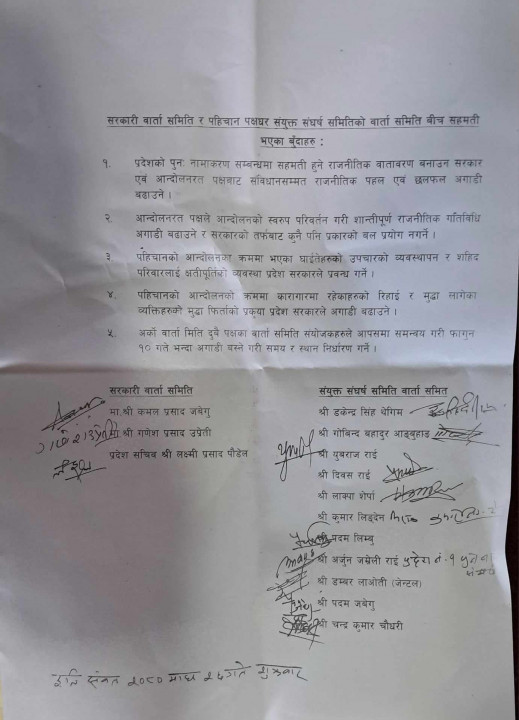 सरकारी वार्ता समिति र पहिचान पक्षधर संयुक्त संघर्ष समितिको वार्ता समिति बीच सहमती
भएका बुँदाहरु :
१. प्रदेशको पुन: नामाकरण सम्वन्धमा सहमती हुने राजनीतिक वातावरण बनाउन सरकार
एवं आन्दोलनरत पक्षबाट संविधानसम्मत राजनीतिक पहल एवं छलफल अगाडी
बढाउने ।
२. आन्दोलनरत पक्षले आन्दोलनको स्वरुप परिवर्तन गरी शान्तीपूर्ण राजनीतिक गतिविधि
अगाडी बढाउने र सरकारको तर्फबाट कुनै पनि प्रकारको बल प्रयोग नगर्ने ।
३. पहिचानको आन्दोलनका क्रममा भएका घाईतेहरुको उपचारको व्यवस्थापन र शहिद
परिवारलाई क्षतीपूर्तिको व्यवस्था प्रदेश सरकारले प्रबन्ध गर्ने ।
४. पहिचानको आन्दोलनको क्रममा कारागारमा रहेकाहरुको रिहाई र मुद्धा लागेका
व्यक्तिहरुको मुद्धा फिर्ताको प्रकृया प्रदेश सरकारले अगाडी बढाउने ।
५. अर्को वार्ता मिति दुवै पक्षका वार्ता समिति संयोजकहरुले आपसमा समन्वय गरी फागुन
१० गते भन्दा अगाडी बस्ने गरी समय र स्थान निर्धारण गर्ने ।
सरकारी वार्ता समिति
मा.श्री कमल प्रसाद जबेगु
मा श्री गणेश प्रसाद उप्रेती
प्रदेश सचिव श्री लक्ष्मी प्रसाद पौडेल
संयुक्त संघर्ष समिति वार्ता समित
श्री डकेन्द्र सिंह थेगिम
श्री गोबिन्द बहादुर आङबुहाङ
श्री युबराज राई
श्री दिवस राई
श्री लाक्पा शेर्पा
श्री कुमार लिङदेन
श्री पदम लिम्बु
श्री अर्जुन जम्नेली राई
श्री डम्बर लाओती (जेन्टल)
श्री पदम जबेगु
श्री चन्द्र कुमार चौधरी
इति संवत २०८० माघ २६ गते शुक्रबार